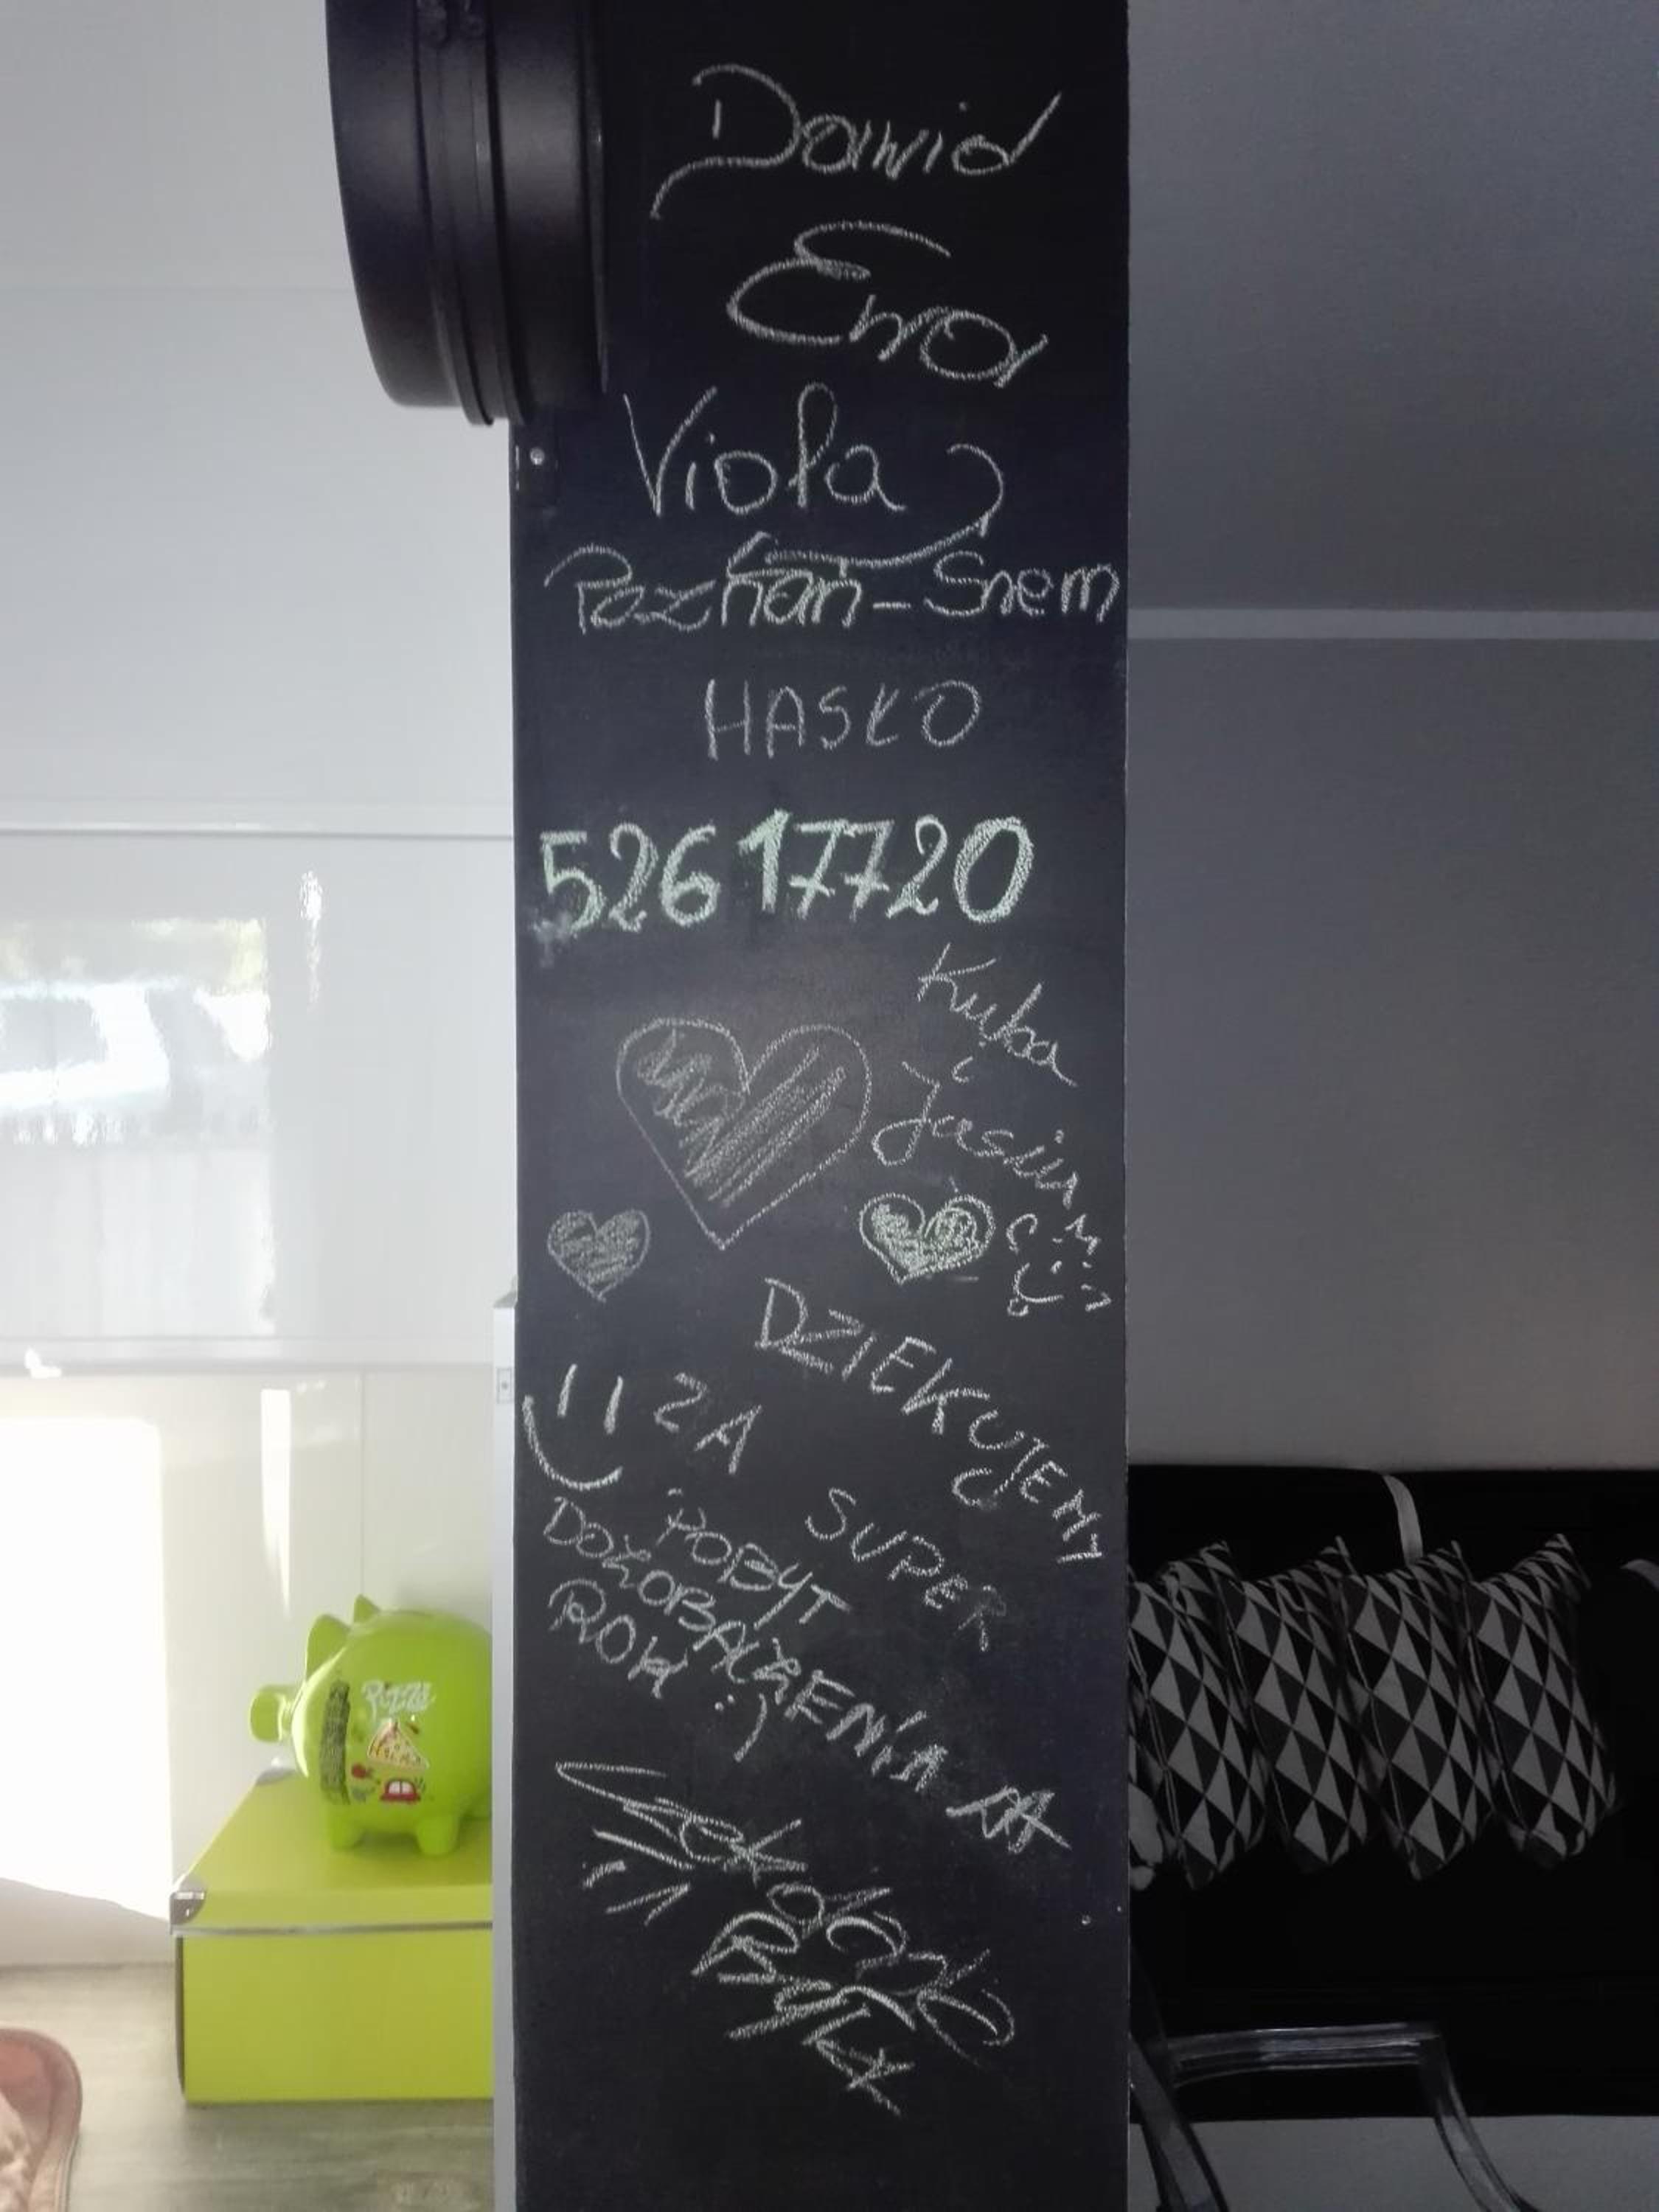 Dawid
Ewa
Viola
Poznań-Śrem
HASŁO
52617720
Kuba
i
Jasiu
DZIEKUJEMY
ZA
SUPER
POBYT
DOZOBACZENIA ZA
ROK :)